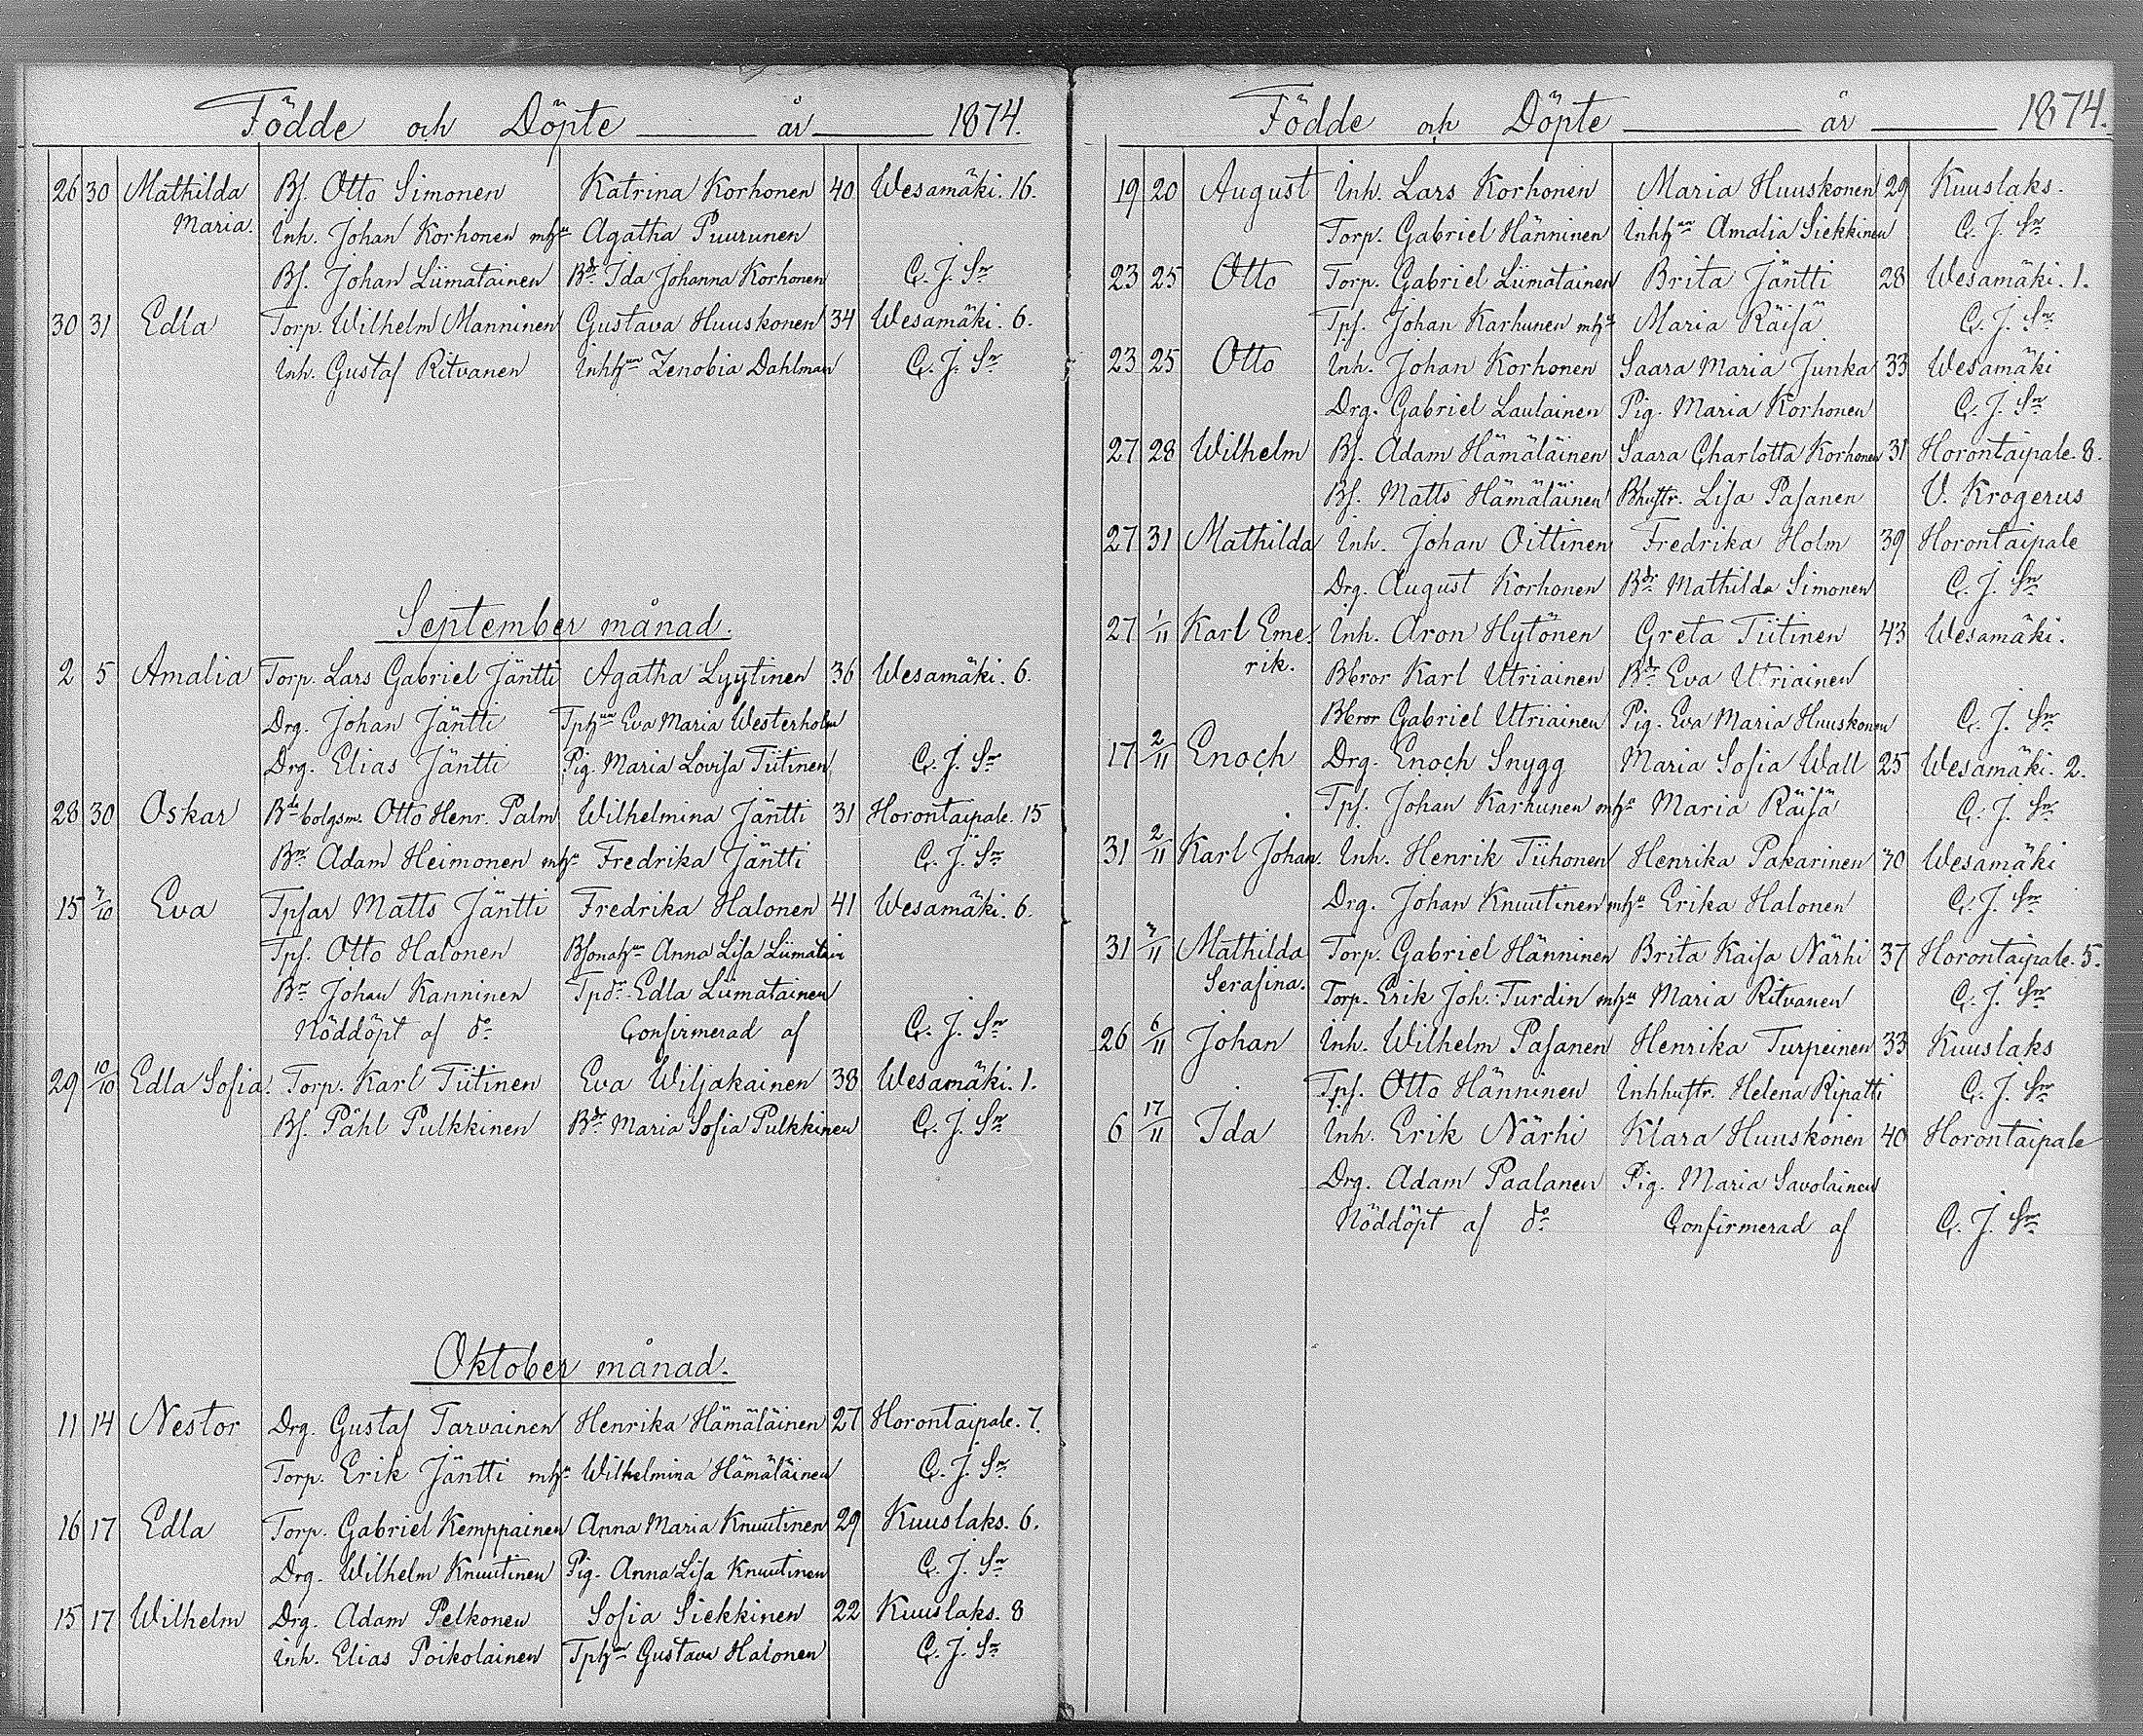 Födde och Döpte år 1874.
26 30 Mathilda Bs. Otto Simonen Katrina Korhonen 40 Wesamäki. 16.
Maria. Inh. Johan Korhonen mhu Agatha Puurunen
Bs. Johan Liimatainen Bdr. Ida Johanna Korhonen C. J. Sn
30 31 Edla Torp. Wilhelm Manninen Gustava Huuskonen 34 Wesamäki. 6.
Inh. Gustaf Ritvanen Inhhun Zenobia Dahlman C. J. Sn
September månad.
2 5 Amalia Torp. Lars Gabriel Jäntti Agatha Lyytinen 36 Wesamäki. 6.
Drg. Johan Jäntti Tphun Eva Maria Westerholm
Drg. Elias Jäntti Pig. Maria Lovisa Tiitinen C. J. Sn
28 30 Oskar Bdebolgsm. Otto Henr. Palm Wilhelmina Jäntti 31 Horontaipale. 15
Bn Adam Heimonen mhu Fredrika Jäntti C. J. Sn
15 7/10 Eva Tpsar Matts Jäntti Fredrika Halonen 41 Wesamäki. 6.
Tps. Otto Halonen Bsonahun Anna Lisa Liimatain
Bn Johan Kanninen Tpdr. Edla Liimatainen
Nöddöpt af do Confirmerad af C. J. Sn
29 10/10 Edla Sofia. Torp. Karl Tiitinen Eva Wiljakainen 38 Wesamäki. 1.
Bs. Påhl Pulkkinen Bdr. Maria Sofia Pulkkinen C. J. Sn
Oktober månad.
11 14 Nestor Drg. Gustaf Tarvainen Henrika Hämäläinen 27 Horontaipale. 7.
Torp. Erik Jäntti mhu Wilhelmina Hämäläinen C. J. Sn
16 17 Edla Torp. Gabriel Kemppainen Anna Maria Knuutinen 29 Kuuslaks. 6.
Drg. Wilhelm Knuutinen Pig. Anna Lisa Knuutinen C. J. Sn
15 17 Wilhelm Drg. Adam Pelkonen Sofia Siekkinen 22 Kuuslaks. 8
Inh. Elias Poikolainen Tphun Gustava Halonen C. J. Sn
Födde och Döpte år 1874.
19 20 August Inh. Lars Korhonen Maria Huuskonen 29 Kuuslaks.
Torp. Gabriel Hänninen Inhhun Amalia Siekkinen C. J. Sn
23 25 Otto Torp. Gabriel Liimatainen Brita Jäntti 28 Wesamäki. 1.
Tps. Johan Karhunen mhu Maria Räisä C. J. Sn
23 25 Otto Inh. Johan Korhonen Saara Maria Junka 33 Wesamäki
Drg. Gabriel Laulainen Pig. Maria Korhonen C. J. Sn
27 28 Wilhelm Bs. Adam Hämäläinen Saara Charlotta Korhonen 31 Horontaipale. 8.
Bs. Matts Hämäläinen Bhustr. Lisa Pasanen V. Krogerus
27 31 Mathilda Inh. Johan Oittinen Fredrika Holm 39 Horontaipale
Drg. August Korhonen Bdr. Mathilda Simonen C. J. Sn
27 1/11 Karl Eme- Inh. Aron Hytönen Greta Tiitinen 43 Wesamäki.
rik. Bbror Karl Utriainen Bdr. Eva Utriainen
Bbror Gabriel Utriainen Pig. Eva Maria Huuskonen C. J. Sn
17 2/11 Enoch Drg. Enoch Snygg Maria Sofia Wall 25 Wesamäki. 2.
Tps. Johan Karhunen mhu Maria Räisä C. J. Sn
31 2/11 Karl Johan. Inh. Henrik Tiihonen Henrika Pakarinen 40 Wesamäki
Drg. Johan Knuutinen mhu Erika Halonen C. J. Sn
31 7/11 Mathilda Torp. Gabriel Hänninen Brita Kaisa Närhi 37 Horontaipale. 5.
Serafina. Torp. Erik Joh. Turdin mhu Maria Ritvanen C. J. Sn
26 6/11 Johan Inh. Wilhelm Pasanen Henrika Turpeinen 33 Kuuslaks
Tps. Otto Hänninen Inhhustr. Helena Ripatti C. J. Sn
6 17/11 Ida Inh. Erik Närhi Klara Huuskonen 40 Horontaipale
Drg. Adam Paalanen Pig. Maria Savolainen
Nöddöpt af do Confirmerad af C. J. Sn